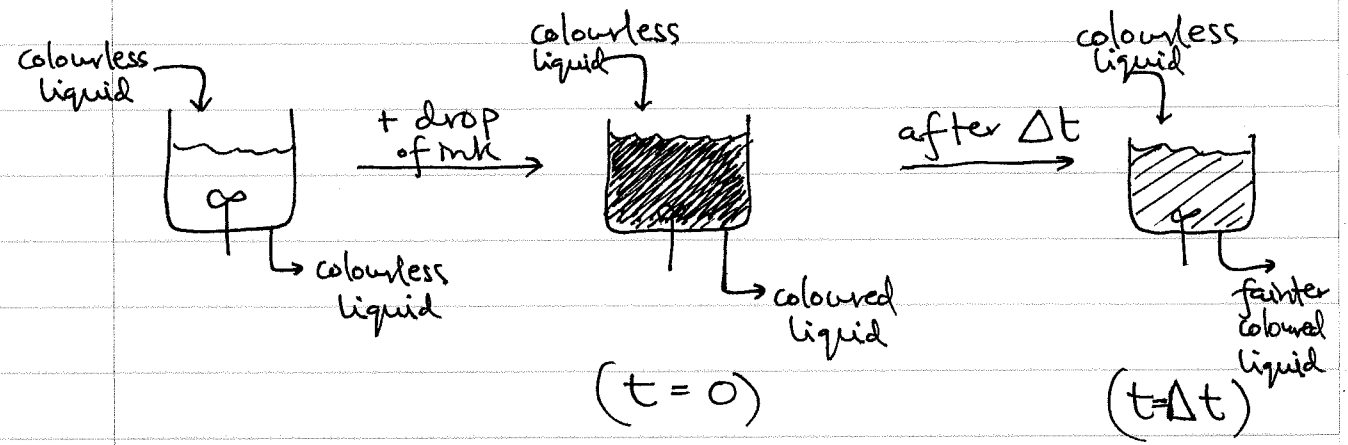 colourless
liquid
+ drop
of ink
colourless
liquid
colourless
liquid
coloured
liquid
(t = 0)
after Δt
colourless
liquid
fainter
coloured
liquid
(t=Δt)